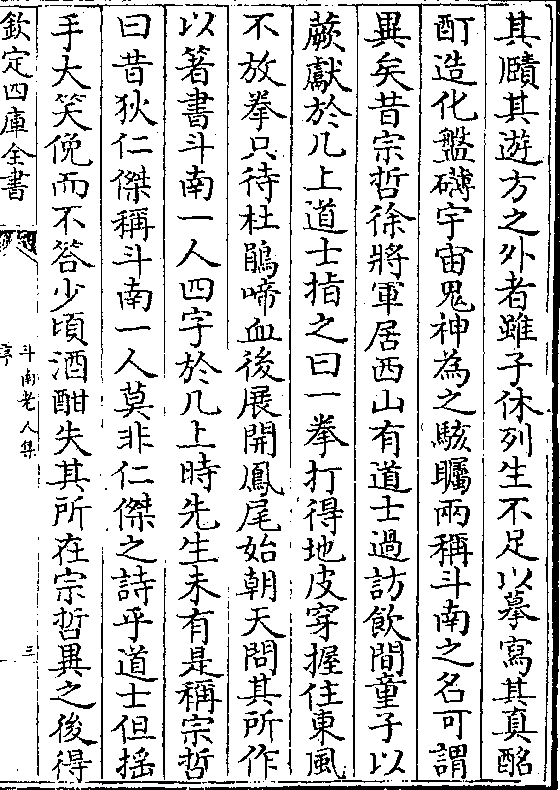 其賾其遊方之外者雖子休列生不足以摹寫其真酩
酊造化盤礴宇宙鬼神為之駭矚兩稱斗南之名可謂
異矣昔宗哲徐將軍居西山有道士過訪飲間童子以
蕨獻於几上道士指之曰一拳打得地皮穿握住東風
不放拳只待杜鵑啼血後展開鳳尾始朝天問其所作
以箸書斗南一人四字於几上時先生未有是稱宗哲
曰昔狄仁傑稱斗南一人莫非仁傑之詩乎道士但揺
手大笑俛而不答少頃酒酣失其所在宗哲異之後得
欽定四庫全書
斗南老人集
序
三